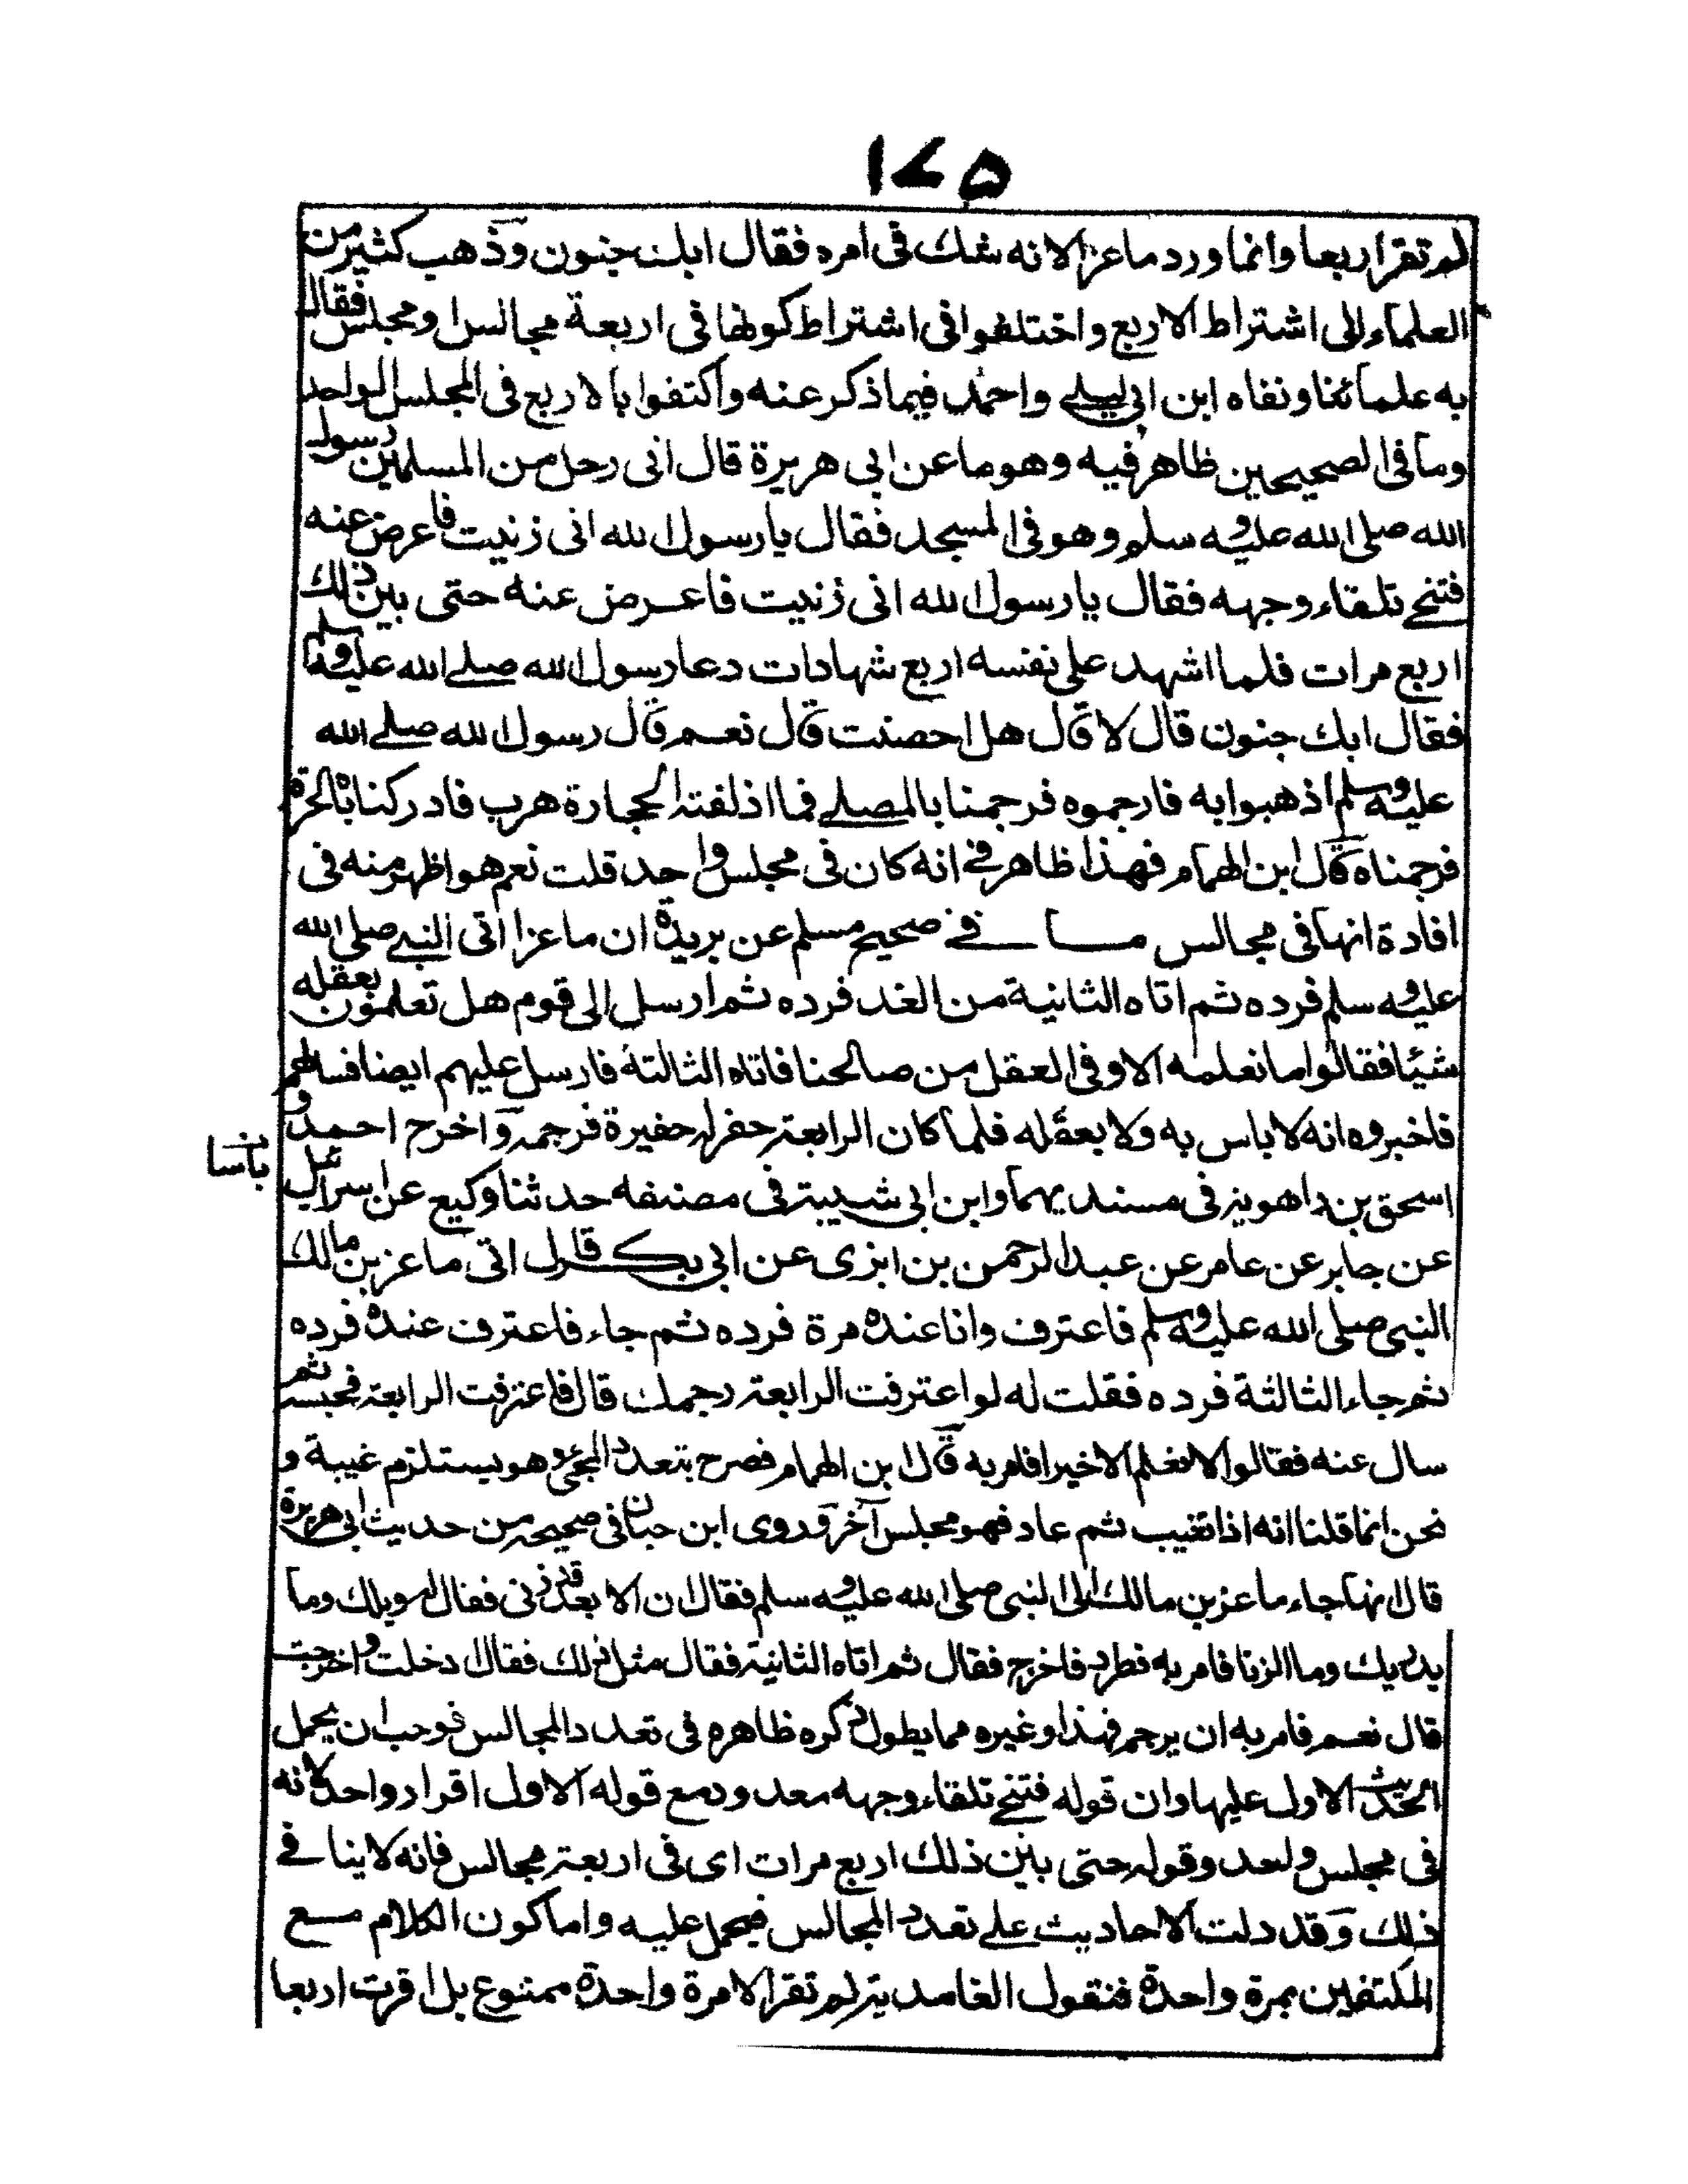 ١٧٥
لم تقر اربعا وانما ورد ماعز الانه شك فى امره فقال ابك جنون وذهب كثير من
العلماء الى اشتراط الاربع واختلفوا فى اشتراط كونها فى اربعة مجالس او مجلس فقال
به علمائنا ونفاه ابن ابى ليلى واحمد فيما ذكر عنه واكتفوا بالاربع فى المجلس الواحد
وما فى الصحيحين ظاهر فيه وهو ما عن ابى هريرة قال اتى رجل من المسلمين رسول
الله صلى الله عليه وسلم وهو فى المسجد فقال يا رسول الله انى زنيت فاعرض عنه
فتنحى تلقاء وجهه فقال يا رسول الله انى زنيت فاعرض عنه حتى بين ذلك
اربع مرات فلما اشهد على نفسه اربع شهادات دعا رسول الله صلى الله عليه وسلم
فقال ابك جنون قال لا قال هل احصنت قال نعم قال رسول الله صلى الله
عليه وسلم اذهبوا به فارجموه فرجمنا بالمصلى فما اذلفته الحجارة هرب فادركناه بالحرة
فرجمناه قال ابن الهمام فهذا ظاهر فى انه كان فى مجلس واحد قلت نعم هو اظهر منه فى
افادة انها فى مجالس ما فى صحيح مسلم عن بريدة ان ماعزا اتى النبى صلى الله
عليه وسلم فرده ثم اتاه الثانية من الغد فرده ثم ارسل الى قوم هل تعلمون بعقله
شيئا فقالوا ما نعلمه الا وفى العقل من صالحنا فاتاه الثالثة فارسل عليهم ايضا فسالهم
فاخبروه انه لا باس به ولا بعقله فلما كان الرابعة حفر له حفيرة فرجمه واخرج احمد و
باسا
اسحق بن راهويه فى مسنديهما وابن ابى شيبة فى مصنفه حدثنا وكيع عن اسرائيل
عن جابر عن عامر عن عبد الرحمن بن ابزى عن ابى بكر قال اتى ماعز بن مالك
النبى صلى الله عليه وسلم فاعترف وانا عنده مرة فرده ثم جاء فاعترف عنده فرده
ثم جاء الثالثة فرده فقلت له لو اعترفت الرابعة رجمك قال فاعترفت الرابعة فحبسه ثم
سال عنه فقالوا لا نعلم الا خيرا فامر به قال ابن الهمام فصرح بتعدد المجئ وهو يستلزم غيبة و
نحن انما قلنا انه اذا تغيب ثم عاد فهو مجلس آخر وروى ابن حبان فى صحيحه من حديث ابى هريرة
قال انها جاء ماعز بن مالك الى النبى صلى الله عليه وسلم فقال ان الا بعد قد زنى فقال له ويلك وما
يدريك وما الزنا فامر به فطرد فاخرج فقال ثم اتاه الثانية فقال مثل ذلك فقال دخلت واخرجت
قال نعم فامر به ان يرجم فهذا وغيره مما يطول ذكره ظاهره فى تعدد المجالس فوجب ان يحمل
الحديث الاول عليها وان قوله فتنحى تلقاء وجهه معدود مع قوله الاول اقرار واحد لانه
فى مجلس واحد وقوله حتى بين ذلك اربع مرات اى فى اربعة مجالس فانه لا ينافى
ذلك وقد دلت الاحاديث على تعدد المجالس فيحمل عليه واما كون الكلام مع
المكتفين بمرة واحدة فنقول الغامدية لم تقر الا مرة واحدة ممنوع بل اقرت اربعا